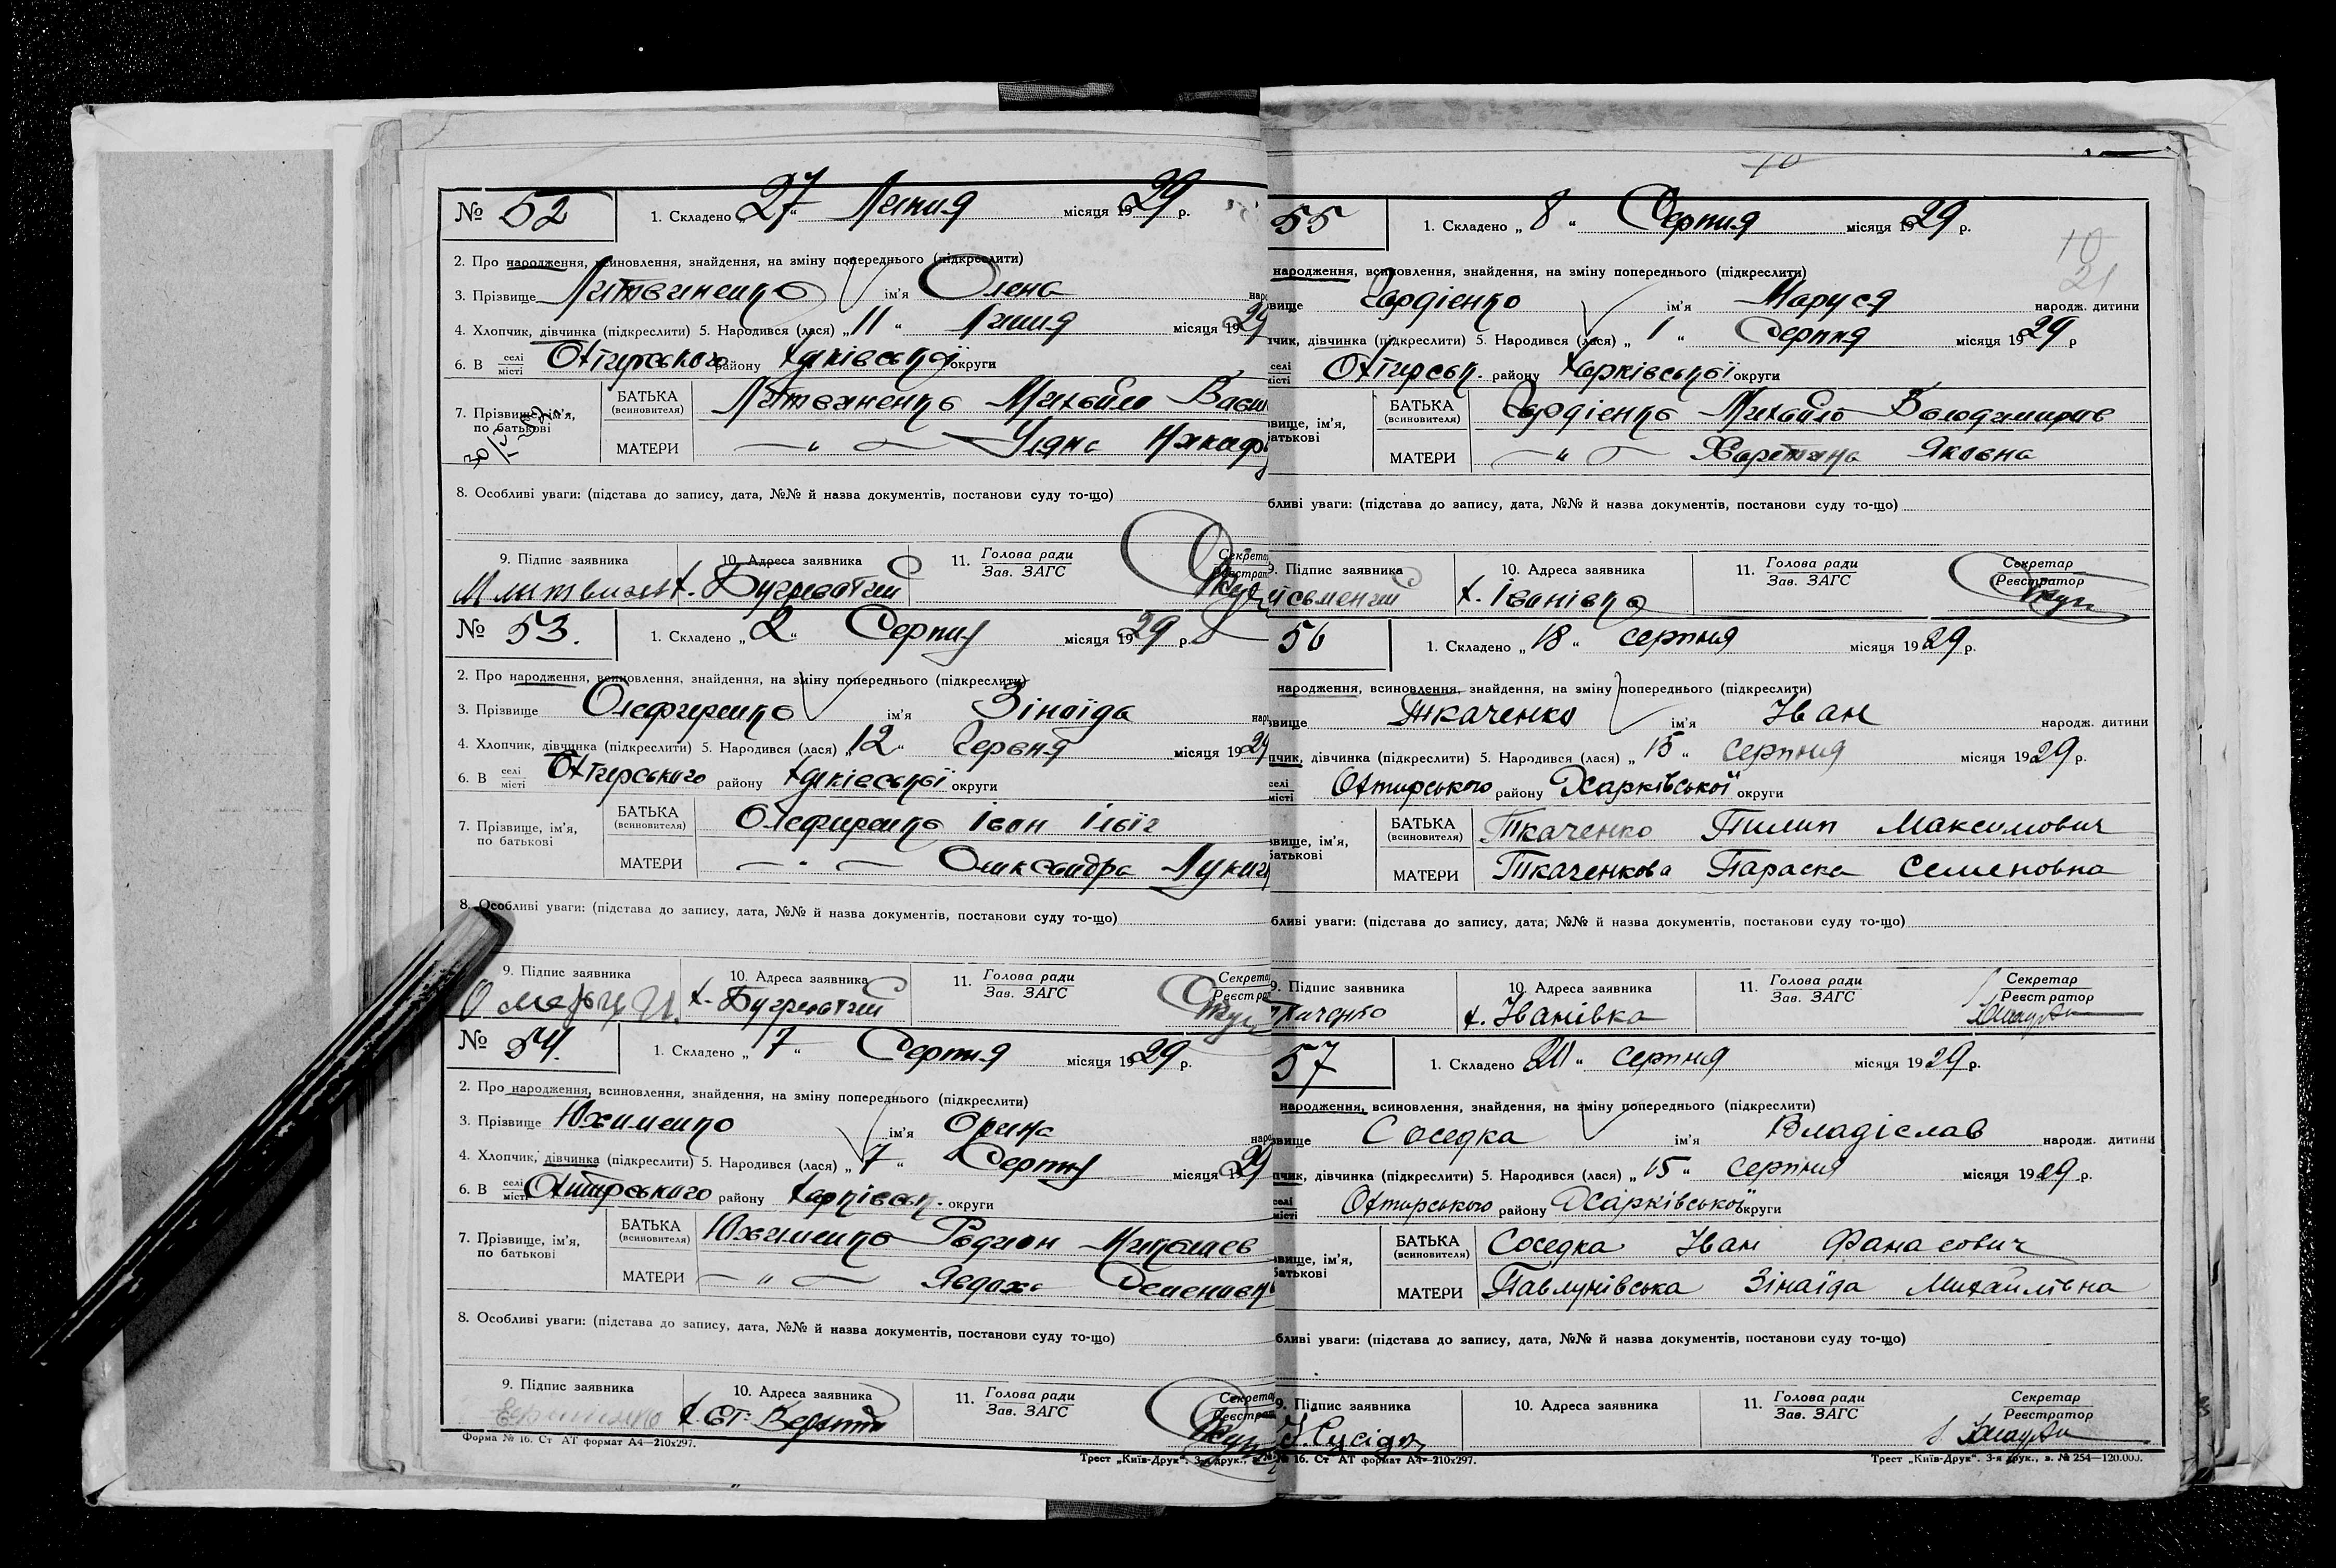 № 52
1. Складено „27“ Липня місяця 1929 р.
2. Про народження, всиновлення, знайдення, на зміну попереднього (підкреслити)
3. Прізвище Литвиненко ім'я Олена
4. Хлопчик, дівчинка (підкреслити) 5. Народився (лася) „11“ Липня місяця 1929
6. В селі місті Охтирського району Харківської округи
7. Прізвище, ім'я, по батькові
БАТЬКА (всиновителя) Литвиненко Михайло
МАТЕРИ — „ — Уляна
8. Особливі уваги: (підстава до запису, дата, №№ й назва документів, постанови суду то-що)
9. Підпис заявника 10. Адреса заявника 11. Голова ради Зав. ЗАГС
х. Бугреватий
№ 53.
1. Складено „2“ Серпня місяця 1929 р.
2. Про народження, всиновлення, знайдення, на зміну попереднього (підкреслити)
3. Прізвище Олефиренко ім'я Зінаїда
4. Хлопчик, дівчинка (підкреслити) 5. Народився (лася) „12“ Червня місяця 1929
6. В селі місті Охтирського району Харківської округи
7. Прізвище, ім'я, по батькові
БАТЬКА (всиновителя) Олефиренко Іван Ілліч
МАТЕРИ — „ — Олександра
8. Особливі уваги: (підстава до запису, дата, №№ й назва документів, постанови суду то-що)
9. Підпис заявника 10. Адреса заявника 11. Голова ради Зав. ЗАГС
х. Бугреватий
№ 54.
1. Складено „7“ Серпня місяця 1929 р.
2. Про народження, всиновлення, знайдення, на зміну попереднього (підкреслити)
3. Прізвище Юхименко ім'я Орина
4. Хлопчик, дівчинка (підкреслити) 5. Народився (лася) „7“ Серпня місяця 1929
6. В селі місті Охтирського району Харківськ. округи
7. Прізвище, ім'я, по батькові
БАТЬКА (всиновителя) Юхименко Радион Миколаєв
МАТЕРИ — „ — Явдоха
8. Особливі уваги: (підстава до запису, дата, №№ й назва документів, постанови суду то-що)
9. Підпис заявника 10. Адреса заявника 11. Голова ради Зав. ЗАГС
Форма № 16. Ст АТ формат А4—210х297.
Трест „Київ-Друк“. 3-я друк.,
55
1. Складено „8“ Серпня місяця 1929 р.
10
21
народження, всиновлення, знайдення, на зміну попереднього (підкреслити)
Гордієнко ім'я Маруся народж. дитини
дівчинка (підкреслити) 5. Народився (лася) „1“ Серпня місяця 1929 р
селі Охтирськ. району Харківської округи
БАТЬКА (всиновителя) Гордієнко Михайло Володимиров
МАТЕРИ — „ — Харетина Яковна
уваги: (підстава до запису, дата, №№ й назва документів, постанови суду то-що)
9. Підпис заявника 10. Адреса заявника 11. Голова ради Зав. ЗАГС Секретар Реєстратор
х. Іванівка
56
1. Складено „18“ серпня місяця 1929 р.
народження, всиновлення, знайдення, на зміну попереднього (підкреслити)
Ткаченко ім'я Іван народж. дитини
дівчинка (підкреслити) 5. Народився (лася) „15“ серпня місяця 1929 р.
селі Охтирського району Харківської округи
БАТЬКА (всиновителя) Ткаченко Пилип Максимович
МАТЕРИ Ткаченкова Параска Семеновна
уваги: (підстава до запису, дата, №№ й назва документів, постанови суду то-що)
9. Підпис заявника 10. Адреса заявника 11. Голова ради Зав. ЗАГС Секретар Реєстратор
х. Іванівка
57
1. Складено серпня місяця 1929 р.
народження, всиновлення, знайдення, на зміну попереднього (підкреслити)
Соседка ім'я Владіслав народж. дитини
дівчинка (підкреслити) 5. Народився (лася) „15“ серпня місяця 1929 р.
селі Охтирського району Харківської округи
БАТЬКА (всиновителя) Соседка Іван Фанасович
МАТЕРИ Павлунівська Зінаїда Михайлівна
уваги: (підстава до запису, дата, №№ й назва документів, постанови суду то-що)
9. Підпис заявника 10. Адреса заявника 11. Голова ради Зав. ЗАГС Секретар Реєстратор
16. Ст АТ формат А4—210х297.
Трест „Київ-Друк“. 3-я друк., в. № 254—120.000.